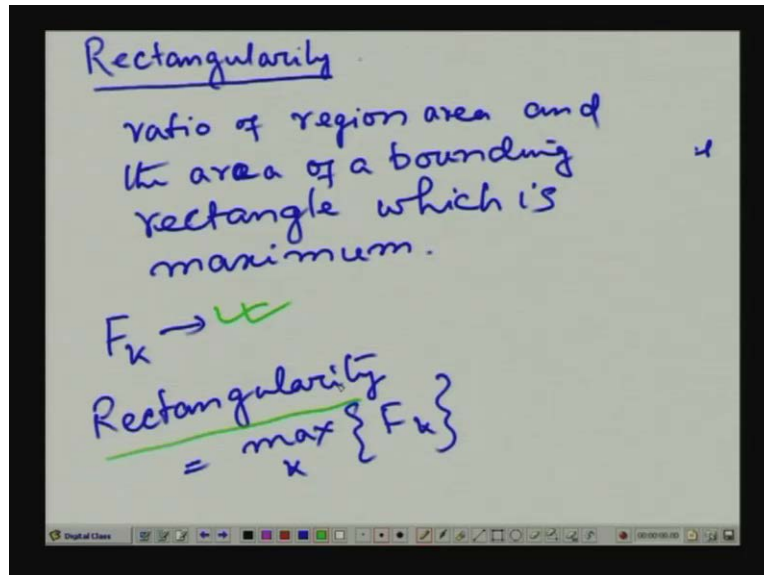 Rectangularity
ratio of region area and
the area of a bounding
rectangle which is
maximum.
F_k →
Rectangularity
= max_k { F_k }
Digital Class
00:00:00.00